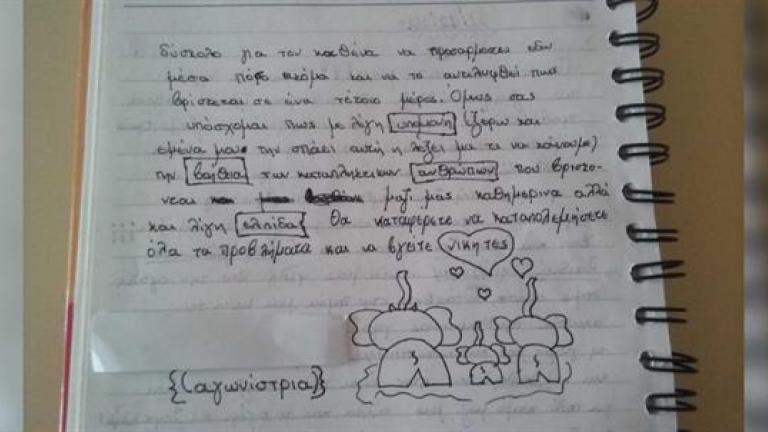 δύσκολο για τον καθένα να προσαρμοστει εδω
μέσα πόσο ακόμα και να το αντιληφθεί πως
βρίσκεται σε ένα τέτοιο μέρος. Όμως σας
υπόσχομαι πως με λίγη υπομονή (ξέρω και
εμένα μου την σπάει αυτή η λέξει μα τι να κάνουμε)
την βοήθεια των καταπληκτικών ανθρώπων που βρισκο-
νται μαζι μας καθημερινα αλλά
και λίγη ελπίδα θα καταφέρετε να καταπολεμήσετε
όλα τα προβλήματα και να βγείτε νικητες
{(αγωνίστρια)}